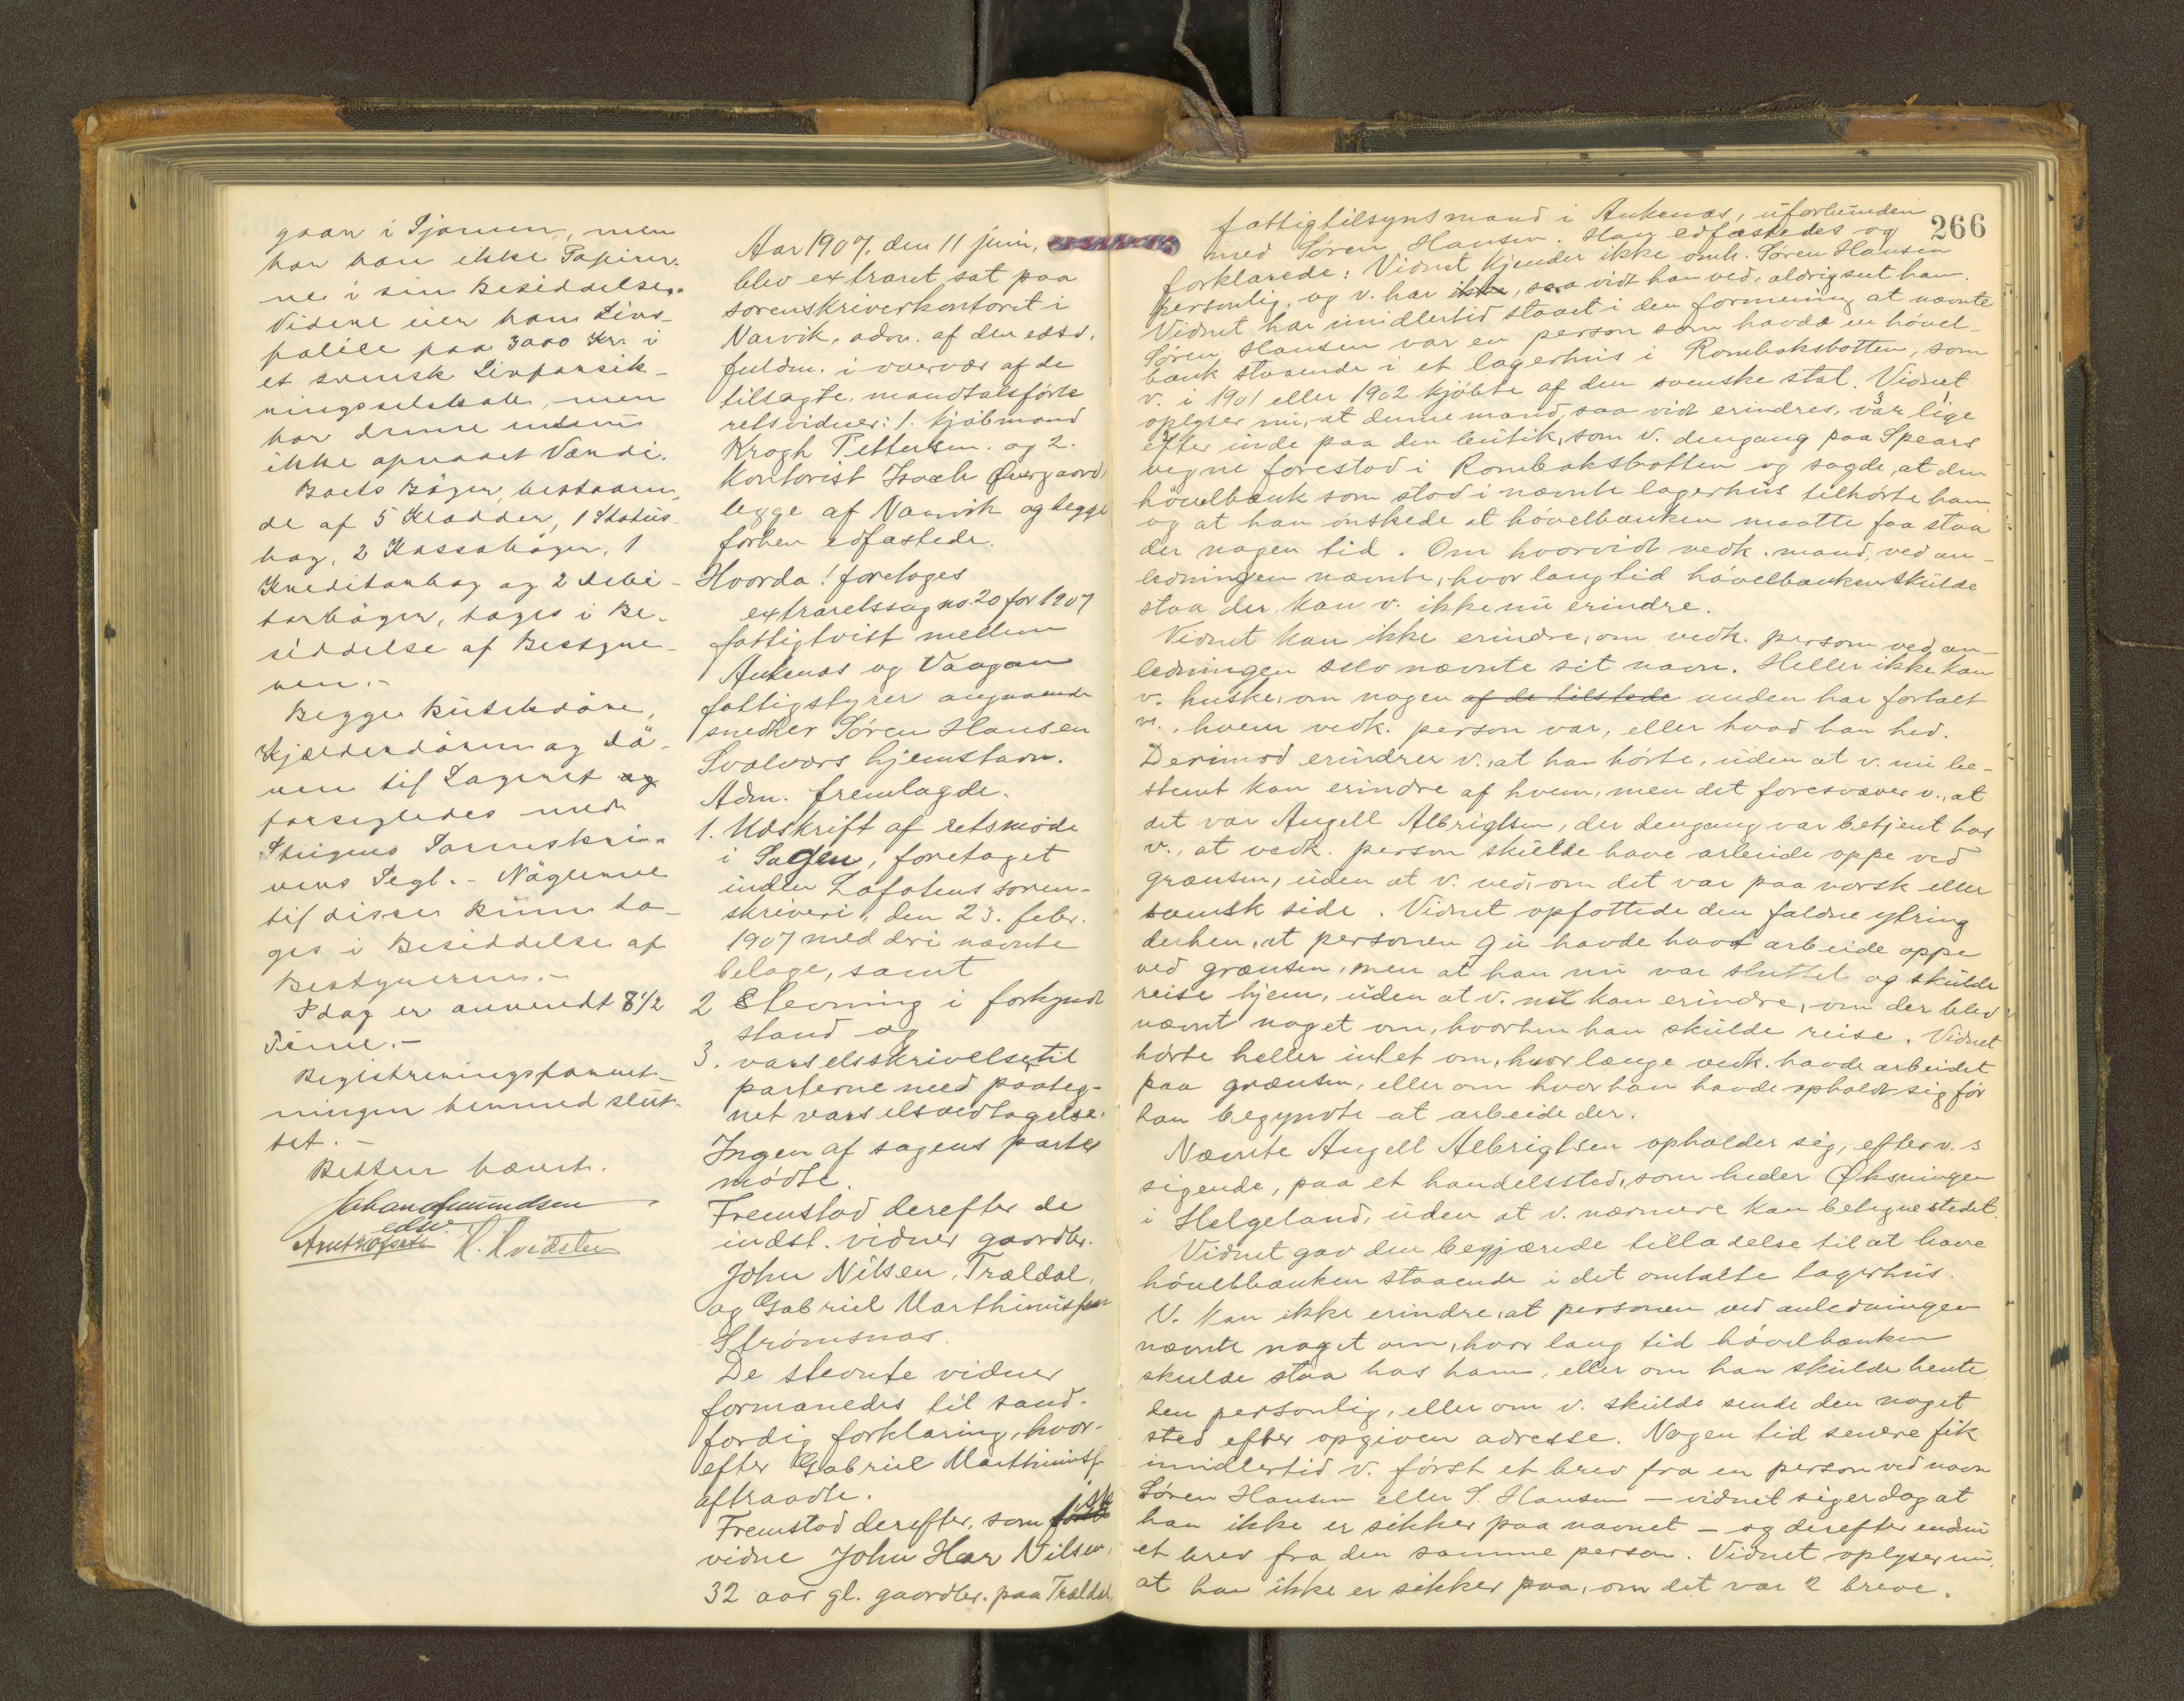 gaar i Tjomen, men
har han ikke Papirer-
ne i sin Besiddelse.
Videre eier han Livs-
polise paa 3000 Kr. i
et svensk Livforsik-
ringsselskab, men
har denne endnu
ikke opnaaet Værdi.
Boets Bøger, bestaaen-
de af 5 Kladder, 1 Status-
bog, 2 Kassabøger, 1
Kreditorbog og 2 Debi-
torbøger, tages i Be-
siddelse af Bestyre-
ren.-
Begge Butikdøre,
Kjælderdøren og Dø-
ren til Lageret og
forsegledes med
Stuens Sorenskri-
vers Segl. - Nøglerne
til disse Rum ta-
ges i Besiddelse af
Bestyreren.-
Idag er anvendt 8 1/2
Time.-
Registreringsforret-
ningen hermed slut-
tet.-
Retten hævet.
Johan Amundsen
edsv
H. Kvidsten
Aar 1907, den 11 juni,
blev extraret sat paa
sorenskriverkontoret i
Narvik, adm. af den edsv.
fuldm. i overvær af de
tilsagte, mandtalsførte
retsvidner: 1. kjøbmand
Krogh Pettersen. og 2.
kontorist Isach Øvergaard,
begge af Narvik og begge
forhen edfæstede.
Hvorda! foretoges
extraretssag no. 20 for 1907
fattigtvist mellem
Ankenæs og Vaagan
fattigstyrer angaaende
snedker Søren Hansen
Svolværs hjemstavn.
Adm. fremlagde.
1. Udskrift af retsmøde
i Sagen, foretaget
inden Lofotens soren-
skriveri, den 23. febr.
1907 med deri nævnte
belage, samt
2 Stevning i forkyndt
stand og
3. varselsskrivelse til
parterne med paateg-
net varselsvedtagelse.
Ingen af sagens parter
mødte.
Fremstod derefter de
indst. vidner gaardbr.
John Nilsen, Trældal,
og Gabriel Marthinussen
Strømsnæs.
De stevnte vidner
formanedes til sand-
færdig forklaring, hvor-
efter Gabriel Marthinusf
aftraadte.
Fremstod derefter, som 1ste
vidne John Hær Nilsen,
32 aar gl. gaardbr. paa Trældal,
266
fattigtilsynsmand i Ankenæs, uforbunden
med Søren Hansen. Han edfæstedes og
forklarede: Vidnet kjender ikke omh. Søren Hansen
personlig, og v. har ikke, saa vidt han ved, aldrig seet ham.
Vidnet har imidlertid staaet i den formening at nævnte
Søren Hansen var en person som havde en høvel-
bænk staaende i et lagerhus i Rombaksbotten, som
v. i 1901 eller 1902 kjøbte af den svenske stat. Vidnet
oplyser nu, at denne mand, saa vidt erindres, var lige
efter inde paa den butik, som v. dengang paa Spears
vegne forestod i Rombaksbotten og sagde, at den
høvelbænk som stod i nævnte lagerhus tilhørte ham
og at han ønskede at høvelbænken maatte faa staa
der nogen tid. Om hvorvidt vedk. mand, ved an-
ledningen nævnte, hvor lang tid høvelbænken skulde
staa der, kan v. ikke nu erindre.
Vidnet kan ikke erindre, om vedk. person ved an-
ledningen selv nævnte sit navn. Heller ikke kan
v. huske, om nogen af de tilstede anden har fortalt
v., hvem vedk. person var, eller hvad han hed.
Derimod erindrer v., at han hørte, uden at v. nu be-
stemt kan erindre af hvem, men det foresvæver v., at
det var Angell Albrigtsen, der dengang var betjent hos
v., at vedk. person skulde have arbeide oppe ved
grænsen, uden at v. ved, om det var paa norsk eller
svensk side. Vidnet opfattede den faldne ytring
derhen, at personen ju havde havt arbeide oppe
ved grænsen, men at han nu var sluttet og skulde
reise hjem, uden at v. nu kan erindre, om der blev
nævnt noget om, hvorhen han skulde reise. Vidnet
hørte heller intet om, hvor længe vedk. havde arbeidet
paa grænsen, eller om hvor han havde opholdt sig før
han begyndte at arbeide der.
Nævnte Angell Albrigtsen opholder sig, efter v.s
sigende, paa et handelssted, som heder Øksningen
i Helgeland, uden at v. nærmere kan betegne stedet.
Vidnet gav den begjærede tilladelse til at have
høvelbænken staaende i det omtalte lagerhus.
V. kan ikke erindre, at personen ved anledningen
nævnte noget om, hvor lang tid høvelbænken
skulde staa hos ham, eller om han skulde hente
den personlig, eller om v. skulde sende den noget
sted efter opgiven adresse. Nogen tid senere fik
imidlertid v. først et brev fra en person ved navn
Søren Hansen eller S. Hansen — vidnet siger dog at
han ikke er sikker paa navnet — og derefter endnu
et brev fra den samme person. Vidnet oplyser nu,
at han ikke er sikker paa, om det var 2 breve.